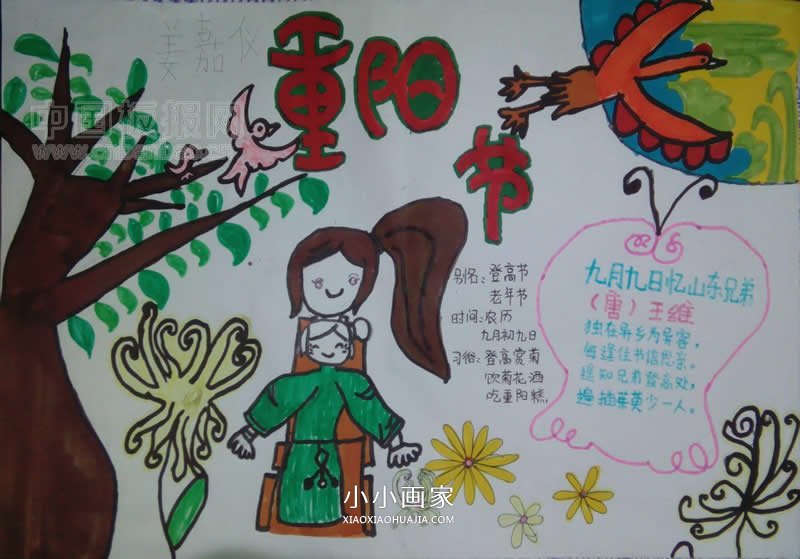 姜嘉仪
重阳节
中国板报网
别名：登高节
老年节
时间：农历
九月初九日
习俗：登高赏菊
饮菊花酒
吃重阳糕
九月九日忆山东兄弟
（唐）王维
独在异乡为异客，
每逢佳节倍思亲。
遥知兄弟登高处，
遍插茱萸少一人。
小小画家
XIAOXIAOHUAJIA.COM